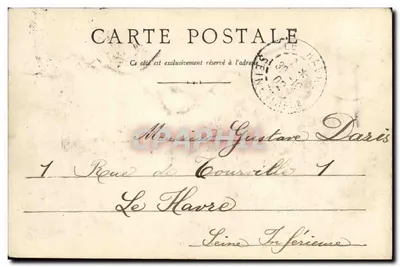 CARTE POSTALE
Ce côté est exclusivement réservé à l'adresse
LE HAVRE
SEINE
Monsieur Gustave Daris
1 Rue de Tourville 1
Le Havre
Seine Inférieure